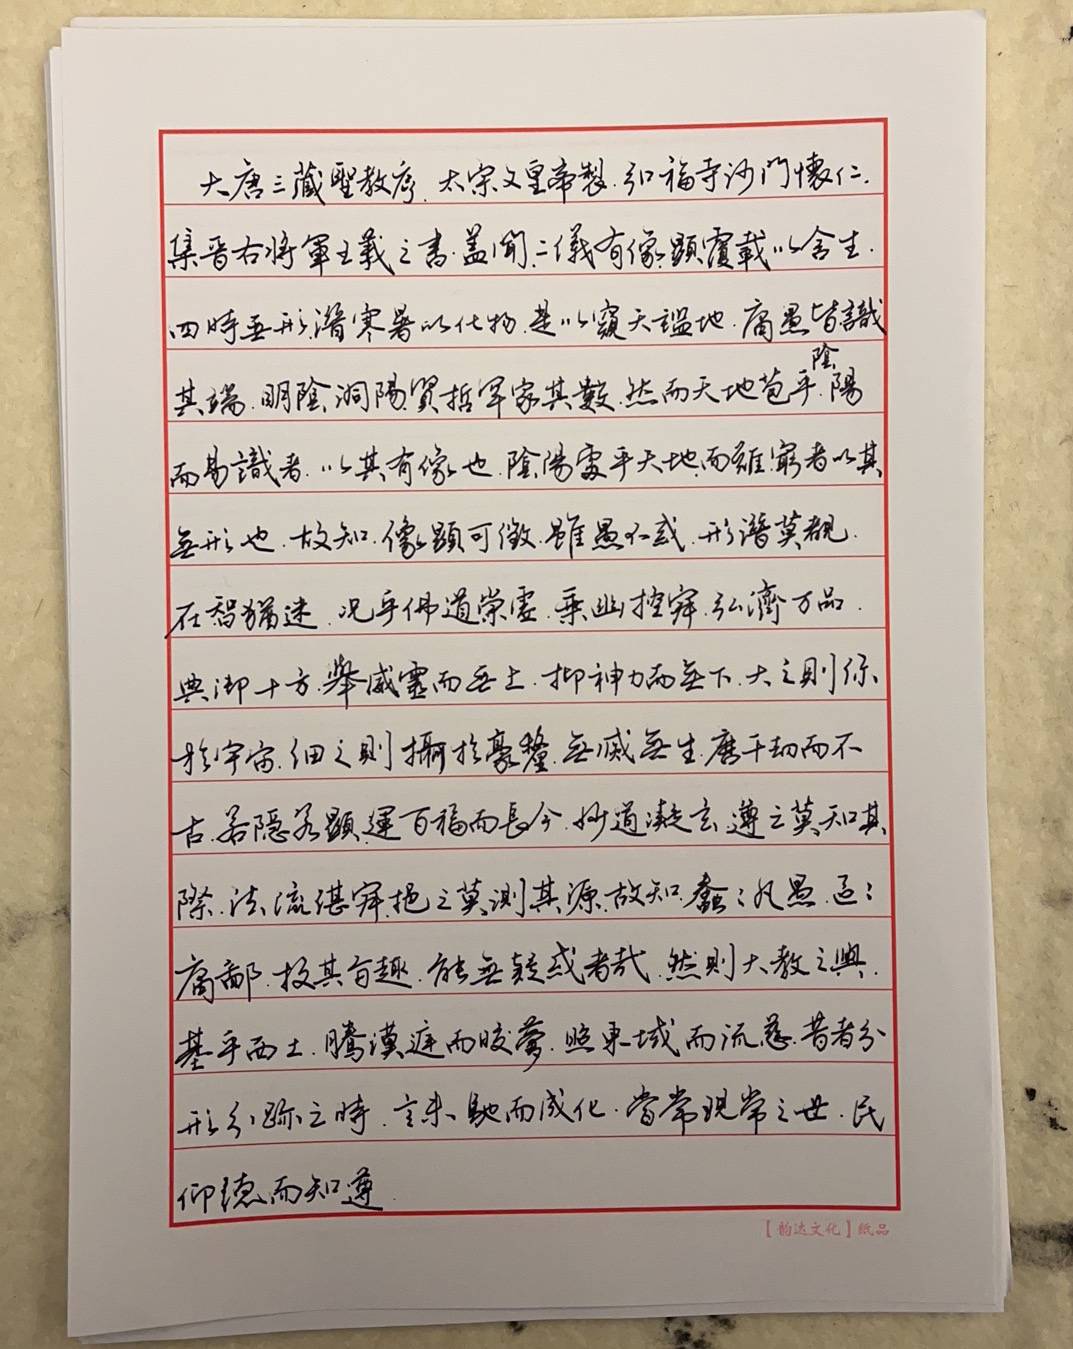 大唐三藏聖教序.太宗文皇帝製.弘福寺沙門懷仁.
集晉右將軍王羲之書.蓋聞二儀有像.顯覆載以含生.
四時無形.潛寒暑以化物.是以窺天鑑地.庸愚皆識
其端.明陰洞陽.賢哲罕窮其數.然而天地苞乎.陰陽
而易識者.以其有像也.陰陽處乎天地.而難窮者以其
無形也.故知.像顯可徵.雖愚不惑.形潛莫覩.
在智猶迷.况乎佛道崇虛.乘幽控寂.弘濟万品.
典御十方.舉威靈而無上.抑神力而無下.大之則彌
於宇宙.細之則攝於豪釐.無滅無生.歷千劫而不
古.若隱若顯.運百福而長今.妙道凝玄.遵之莫知其
際.法流湛寂.挹之莫測其源.故知.蠢:凡愚.區:
庸鄙.投其旨趣.能無疑惑者哉.然則大教之興.
基乎西土.騰漢庭而皎夢.照東域而流慈.昔者分
形分跡之時.言未馳而成化.當常現常之世.民
仰德而知遵.
【韵达文化】紙品